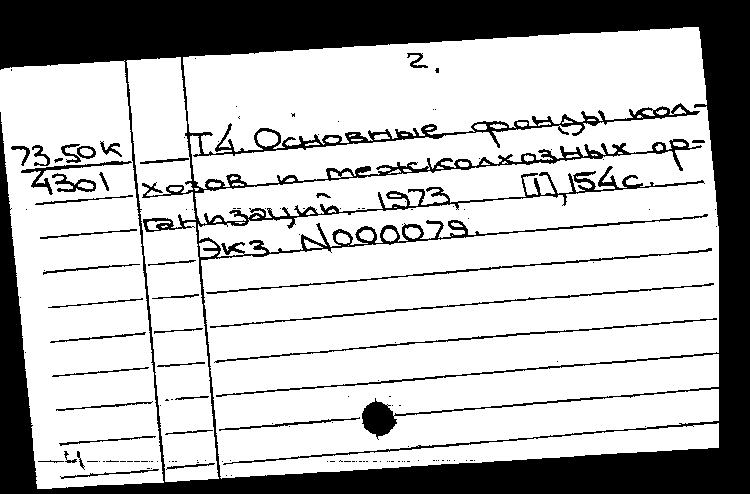 2.
73-50к
4301
Т.4. Основные фонды кол-
хозов и межколхозных ор-
ганизаций. 1973. [1], 154с.
Экз. N000079.
4